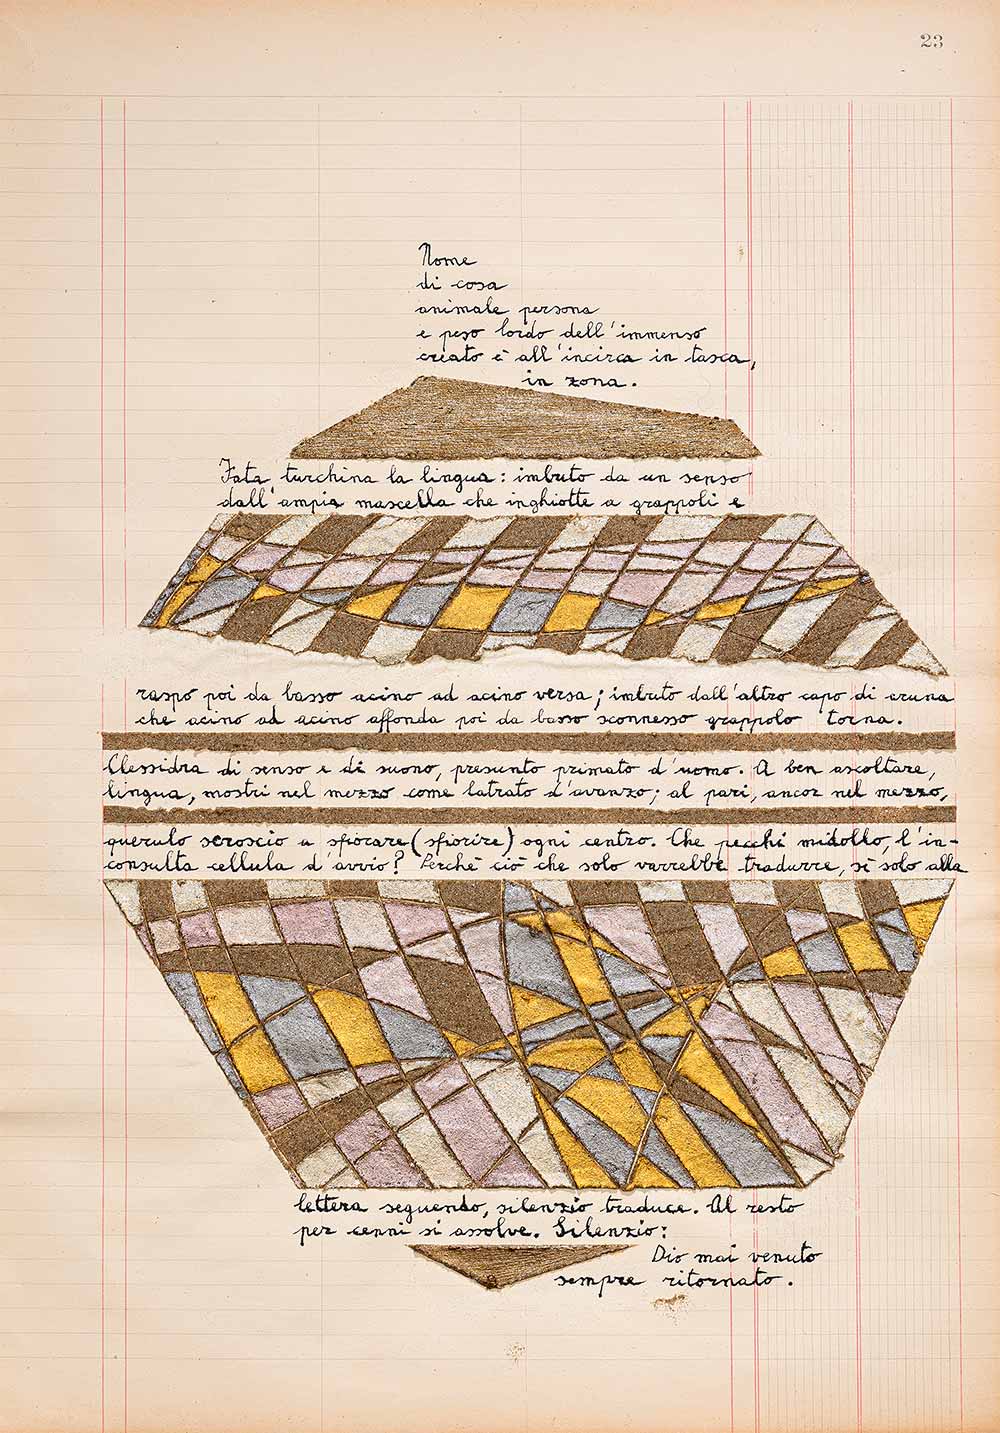 23
Nome
di cosa
animale persona
e peso lordo dell'immenso
creato è all'incirca in tasca,
in zona.
Fata turchina la lingua: imbuto da un senso
dall'ampia mascella che inghiotte a grappoli e
raspo poi da basso acino ad acino versa; imbuto dall'altro capo di cruna
che acino ad acino affonda poi da basso sconnesso grappolo torna.
Clessidra di senso e di suono, presunto primato d'uomo. A ben ascoltare,
lingua, mostri nel mezzo come latrato d'avanzo; al pari, ancor nel mezzo,
querulo scroscio a sfiorare (sfiorire) ogni centro. Che pecchi midollo, l'in-
consulta cellula d'avvio? Perché ciò che solo varrebbe tradurre, sì solo alla
lettera seguendo, silenzio traduce. Al resto
per cenni si assolve. Silenzio:
Dio mai venuto
sempre ritornato.